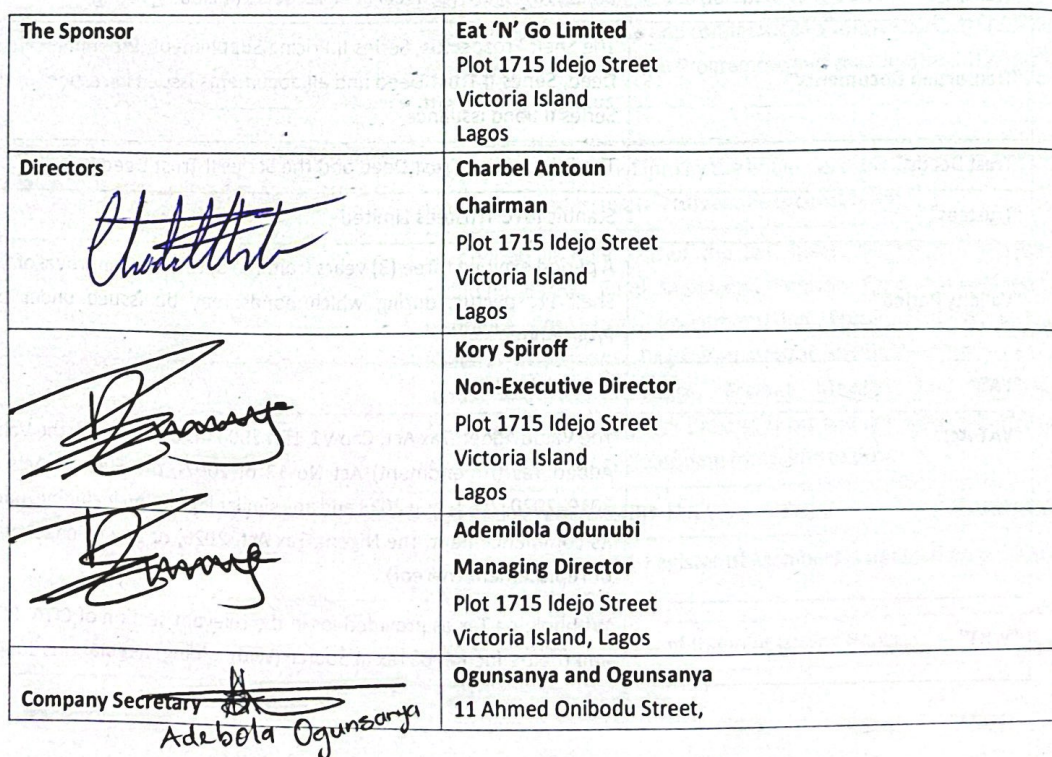 The Sponsor
Eat ‘N’ Go Limited
Plot 1715 Idejo Street
Victoria Island
Lagos
Directors
Charbel Antoun
Chairman
Plot 1715 Idejo Street
Victoria Island
Lagos
Kory Spiroff
Non-Executive Director
Plot 1715 Idejo Street
Victoria Island
Lagos
Ademilola Odunubi
Managing Director
Plot 1715 Idejo Street
Victoria Island, Lagos
Company Secretary
Adebola Ogunsanya
Ogunsanya and Ogunsanya
11 Ahmed Onibodu Street,